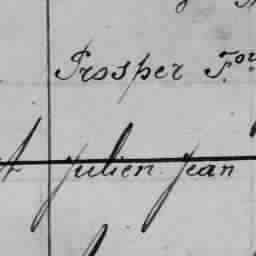 Prosper For
Julien Jean